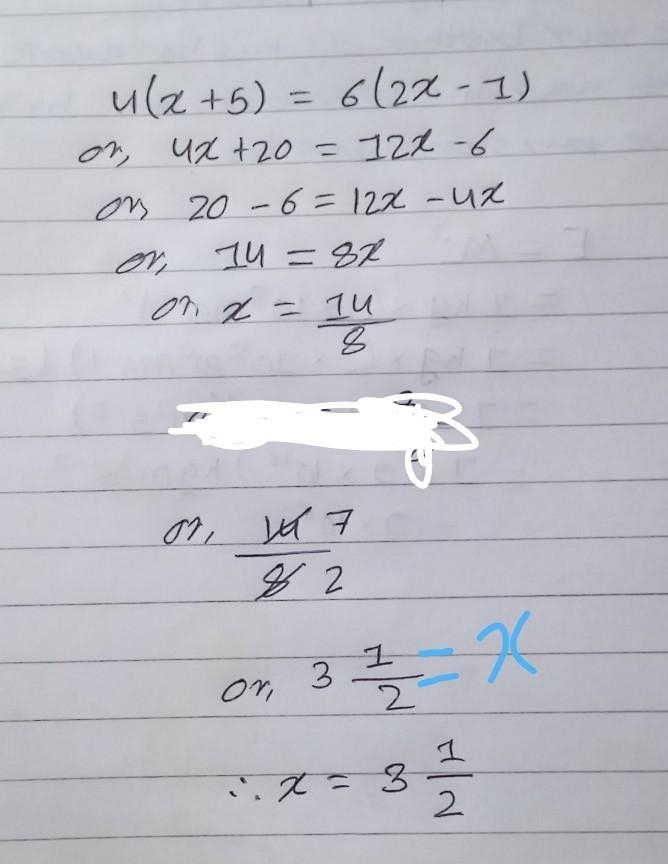 4(x + 5) = 6(2x - 1)
or, 4x + 20 = 12x - 6
or, 20 - 6 = 12x - 4x
or, 14 = 8x
or, x = 14/8
or, 14 7 / 8 2
or, 3 1/2 = x
∴ x = 3 1/2